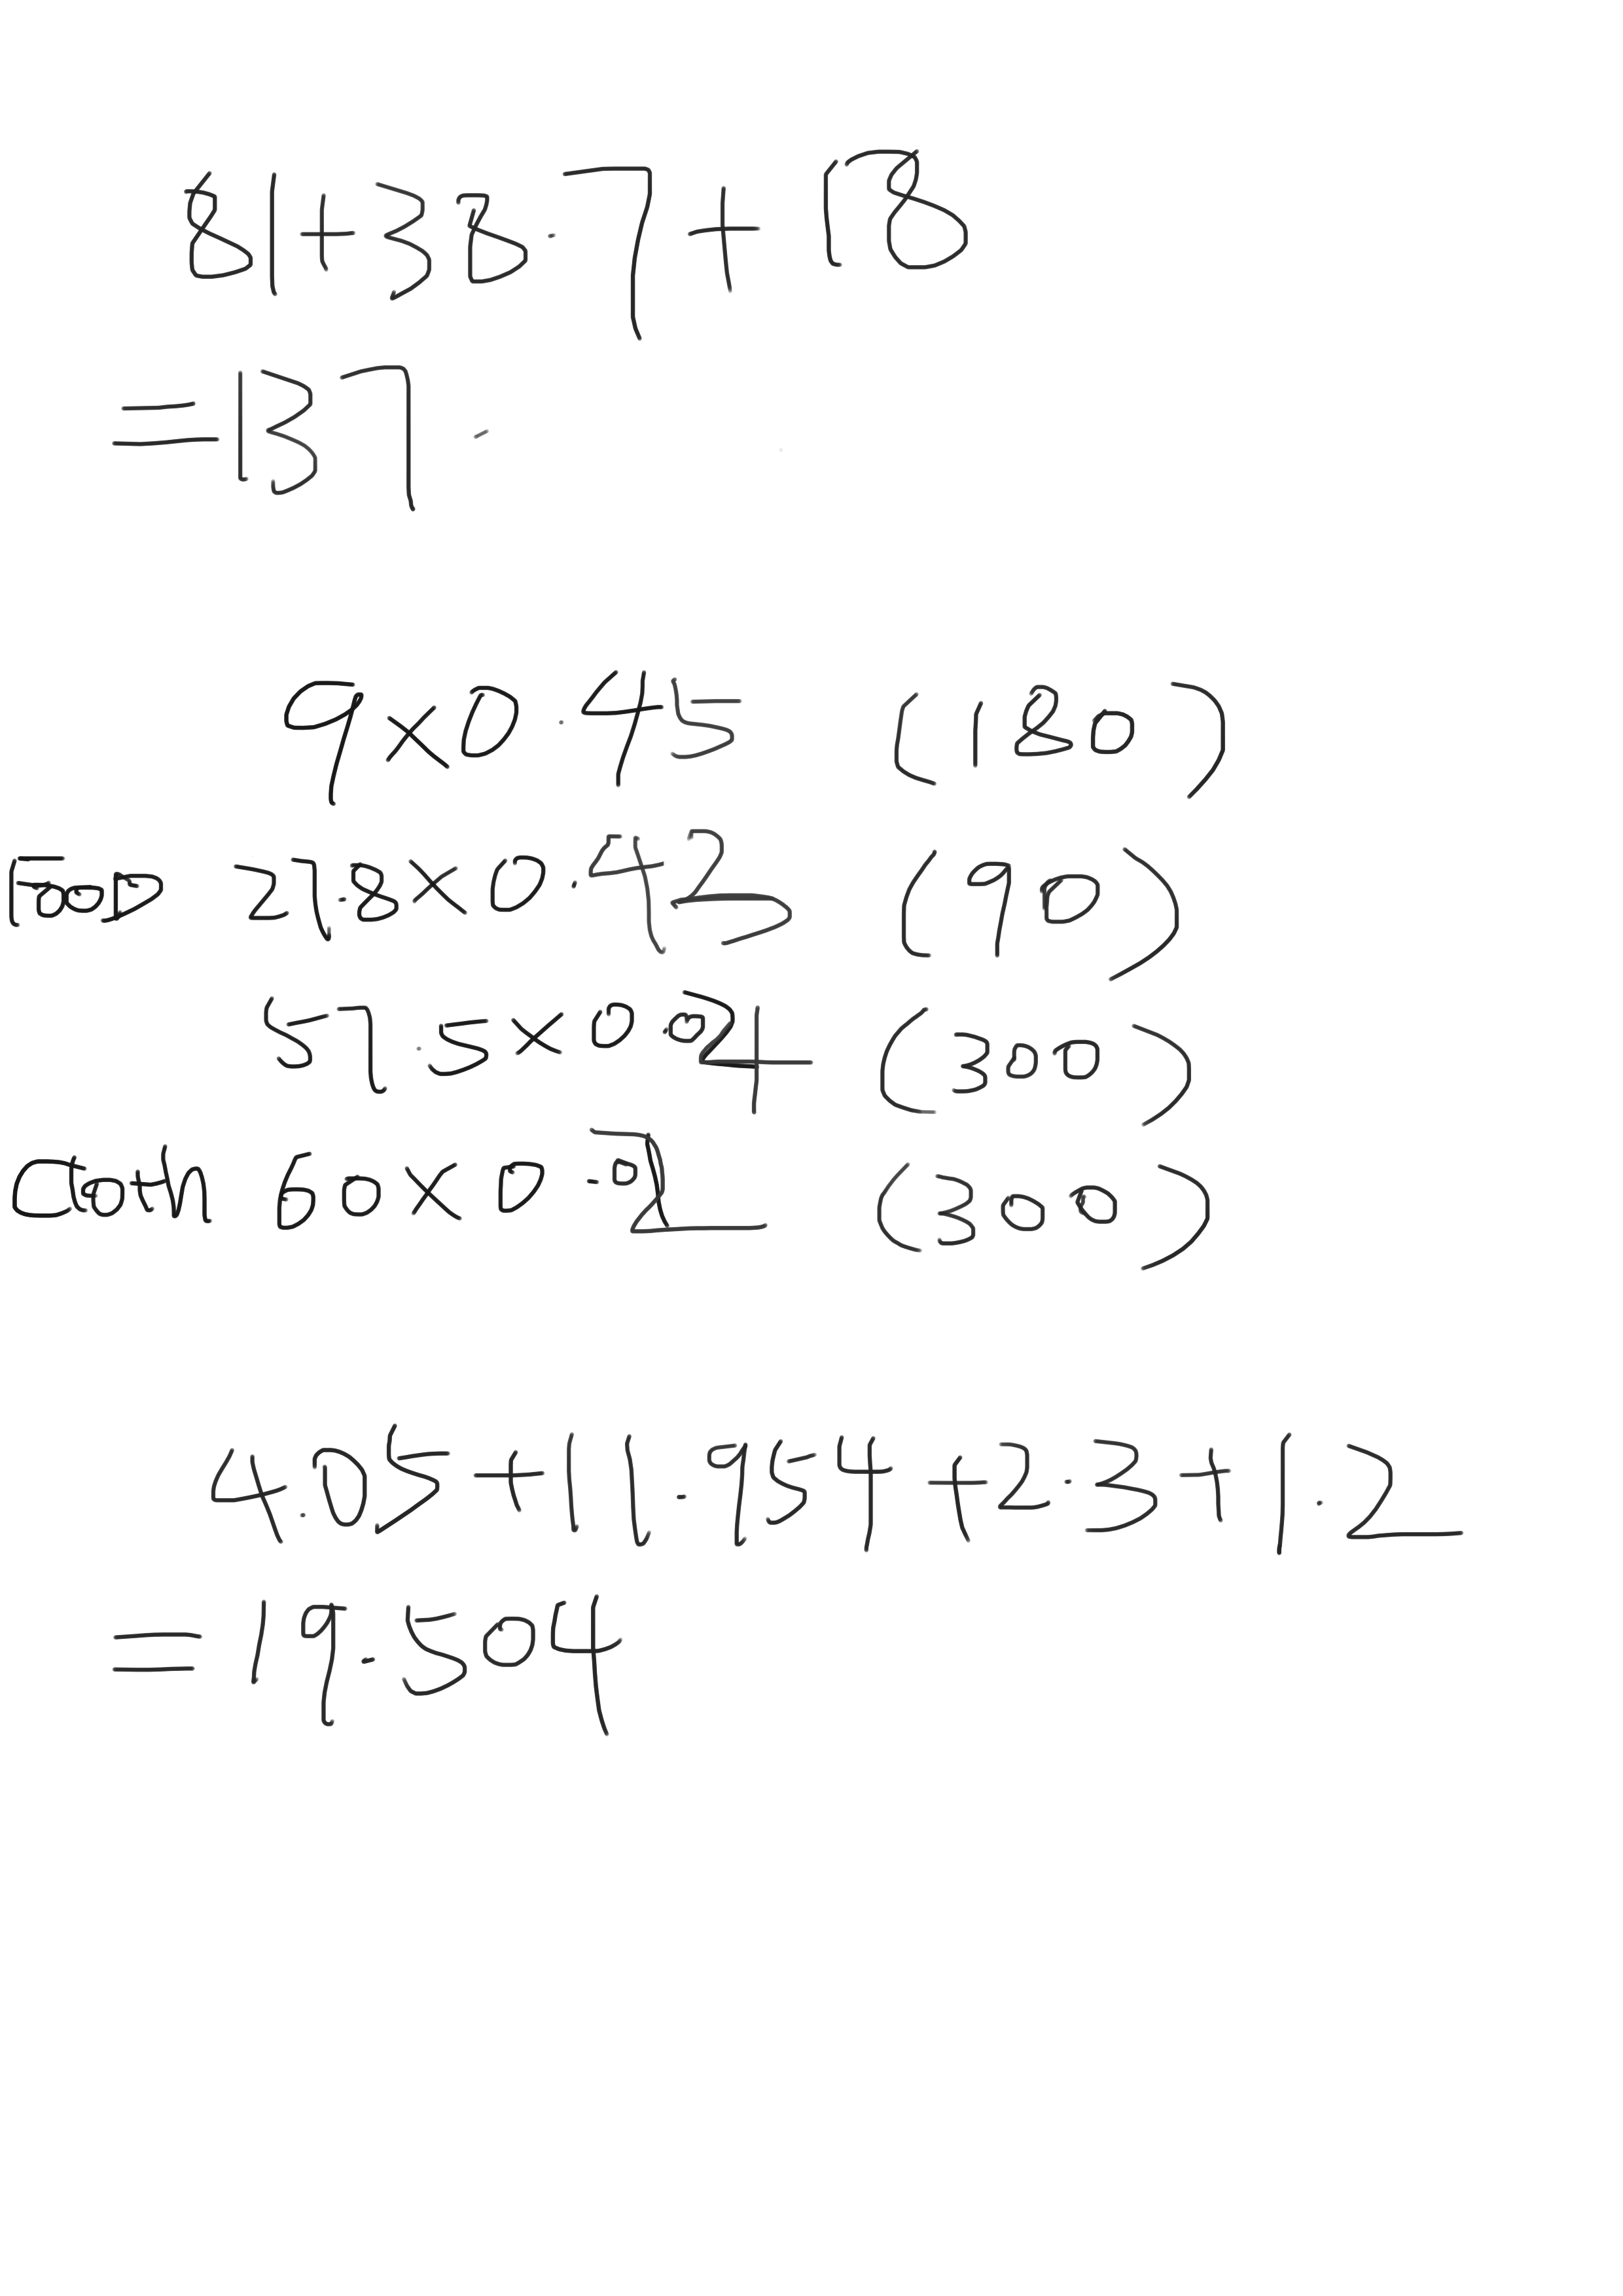 81+38.7+18
=137.
9×0.45 (180)
Food 27.8×0.43 (90)
57.5×0.04 (300)
Cloth 60×0.02 (300)
4.05+11.954+2.3+1.2
=19.504